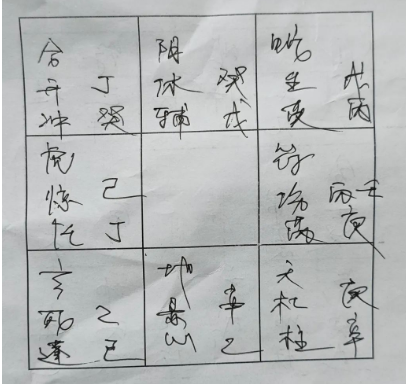 合
开 丁
冲 癸
阴
休 癸
辅 戊
蛇
生 戊
英 丙
虎
惊 己
任 丁
符
伤 丙壬
芮 庚
玄
死 乙
蓬 己
地
景 辛
心 乙
天
杜 庚
柱 辛